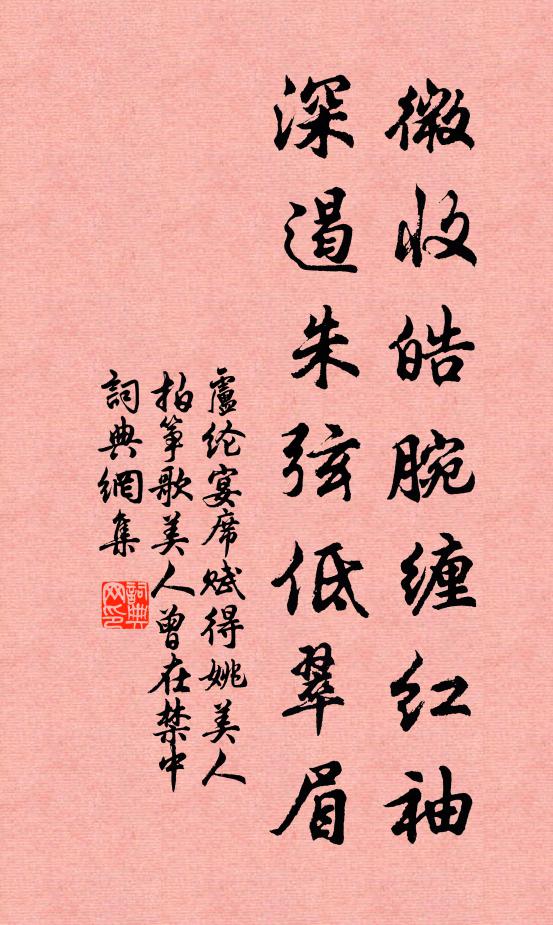 微收皓腕缠红袖
深遏朱弦低翠眉
盧纶宴席赋得姚美人
拍筝歌美人曾在禁中
詞典網集
詞典网印